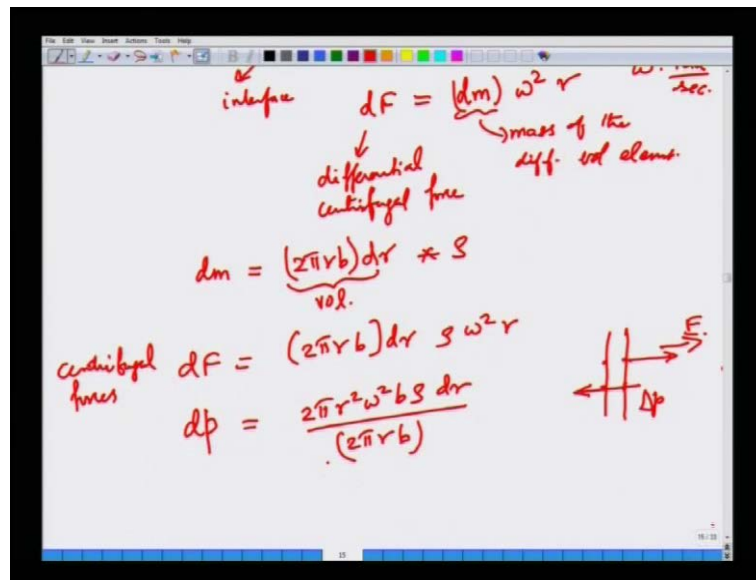 File Edit View Insert Actions Tools Help
interface
dF = (dm) ω² r
ω: rad/sec.
mass of the
diff. vol element.
differential
centrifugal force
dm = (2πrb)dr * ρ
vol.
centrifugal forces dF = (2πrb)dr ρ ω² r
F.
dp = 2πr²ω²bρ dr / (2πrb)
Δp
15/33
15